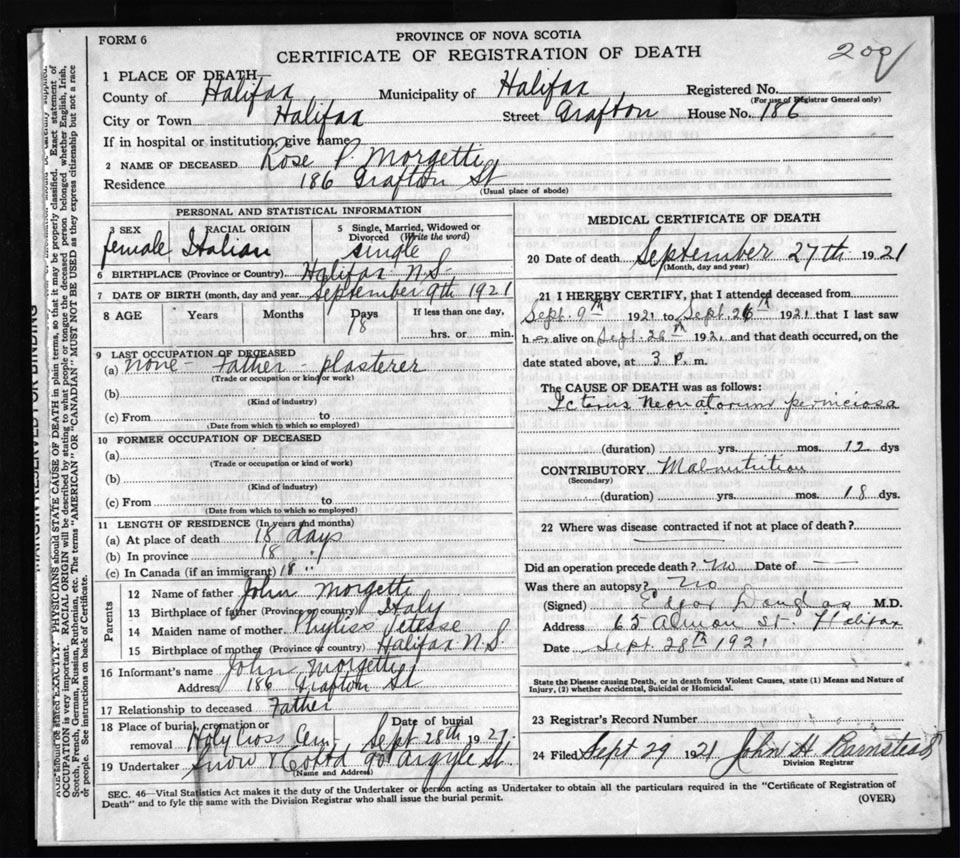 FORM 6
PROVINCE OF NOVA SCOTIA
CERTIFICATE OF REGISTRATION OF DEATH
209
1 PLACE OF DEATH—
County of Halifax Municipality of Halifax Registered No.
(For use of Registrar General only)
City or Town Halifax Street Grafton House No. 186
If in hospital or institution, give name
2 NAME OF DECEASED Rose P. Morgetti
Residence 186 Grafton St
(Usual place of abode)
PERSONAL AND STATISTICAL INFORMATION
3 SEX RACIAL ORIGIN 5 Single, Married, Widowed or Divorced (Write the word)
female Italian single
6 BIRTHPLACE (Province or Country) Halifax N.S.
7 DATE OF BIRTH (month, day and year) September 9th 1921
8 AGE Years Months Days If less than one day,
18 hrs. or min.
9 LAST OCCUPATION OF DECEASED
(a) none - Father - plasterer
(Trade or occupation or kind or work)
(b)
(Kind of industry)
(c) From to
(Date from which to which so employed)
10 FORMER OCCUPATION OF DECEASED
(a)
(Trade or occupation or kind of work)
(b)
(Kind of industry)
(c) From to
(Date from which to which so employed)
11 LENGTH OF RESIDENCE (In years and months)
(a) At place of death 18 days
(b) In province 18 "
(c) In Canada (if an immigrant) 18 "
Parents
12 Name of father John Morgetti
13 Birthplace of father (Province or country) Italy
14 Maiden name of mother Phyliss
15 Birthplace of mother (Province or country) Halifax N.S
16 Informant's name John Morgetti
Address 186 Grafton St
17 Relationship to deceased Father
18 Place of burial, cremation or removal Date of burial
Holy Cross Cem. Sept 28th 1921.
19 Undertaker Snow & Co Ltd 90 Argyle St.
(Name and Address)
MEDICAL CERTIFICATE OF DEATH
20 Date of death September 27th 1921
(Month, day and year)
21 I HEREBY CERTIFY, that I attended deceased from
Sept. 9th 1921 to Sept. 26th 1921 that I last saw
her alive on Sept. 26th 1921 and that death occurred, on the
date stated above, at 3 P. m.
The CAUSE OF DEATH was as follows:
Icterus Neonatorum perniciosa
(duration) yrs. mos. 12 dys
CONTRIBUTORY Malnutrition
(Secondary)
(duration) yrs. mos. 18 dys.
22 Where was disease contracted if not at place of death?
Did an operation precede death? No Date of —
Was there an autopsy? No
(Signed) Edgar Douglas M.D.
Address 65 Almon St. Halifax
Date Sept. 28th 1921
State the Disease causing Death, or in death from Violent Causes, state (1) Means and Nature of
Injury, (2) whether Accidental, Suicidal or Homicidal.
23 Registrar's Record Number
24 Filed Sept 29 1921 John H Barnstead
Division Registrar
SEC. 46—Vital Statistics Act makes it the duty of the Undertaker or person acting as Undertaker to obtain all the particulars required in the "Certificate of Registration of
Death" and to fyle the same with the Division Registrar who shall issue the burial permit.
(OVER)
MARGIN RESERVED FOR BINDING
AGE should be stated EXACTLY. PHYSICIANS should STATE CAUSE OF DEATH in plain terms, so that it may be properly classified. Exact statement of
OCCUPATION is very important. RACIAL ORIGIN will be described by stating to what people or tongue the deceased person belonged whether English, Irish,
Scotch, French, German, Russian, Ruthenian, etc. The terms "AMERICAN" OR "CANADIAN" MUST NOT BE USED as they express citizenship but not a race
or people. See instructions on back of Certificate.